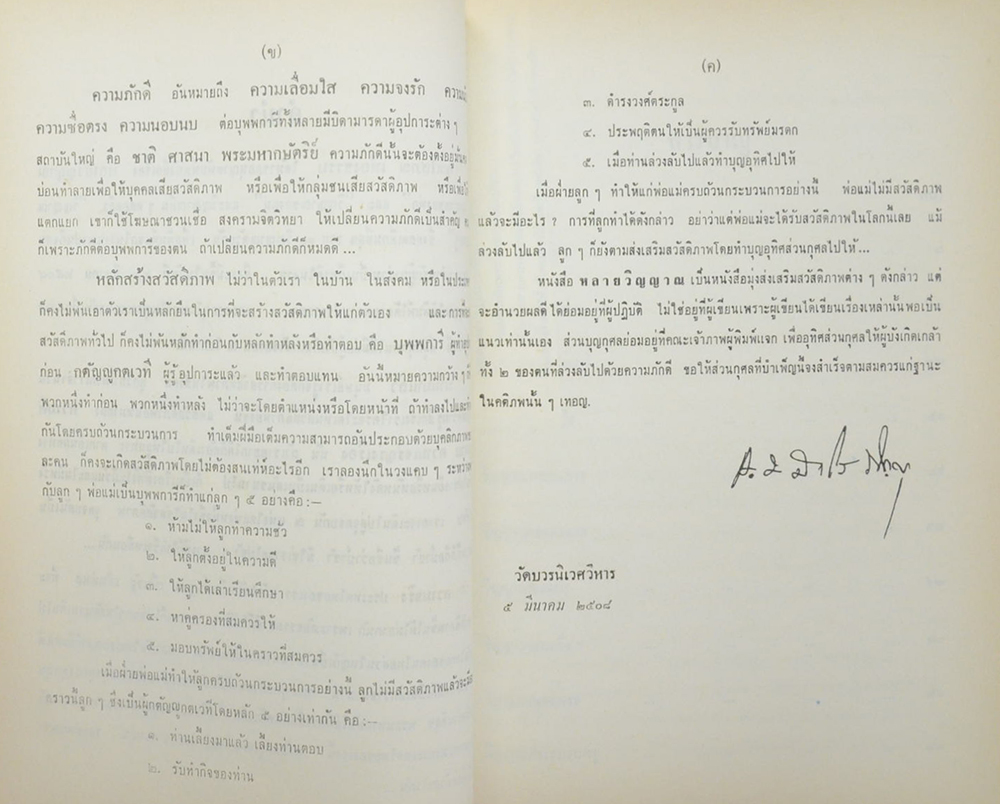 (ข)
ความภักดี อันหมายถึง ความเลื่อมใส ความจงรัก
ความซื่อตรง ความนอบนบ ต่อบุพพการีทั้งหลายมีบิดามารดาผู้อุปการะต่าง ๆ
สถาบันใหญ่ คือ ชาติ ศาสนา พระมหากษัตริย์ ความภักดีนั้นจะต้องตั้งอยู่
บ่อนทำลายเพื่อให้บุคคลเสียสวัสดิภาพ หรือเพื่อให้กลุ่มชนเสียสวัสดิภาพ หรือเพื่อ
แตกแยก เขาก็ใช้โฆษณาชวนเชื่อ สงครามจิตวิทยา ให้เปลี่ยนความภักดีเป็นสำคัญ
ก็เพราะภักดีต่อบุพพการีของตน ถ้าเปลี่ยนความภักดีก็หมดดี ...
หลักสร้างสวัสดิภาพ ไม่ว่าในตัวเรา ในบ้าน ในสังคม หรือใน
ก็คงไม่พ้นเอาตัวเราเป็นหลักยืนในการที่จะสร้างสวัสดิภาพให้แก่ตัวเอง และ
สวัสดิภาพทั่วไป ก็คงไม่พ้นหลักทำก่อนกับหลักทำหลังหรือทำตอบ คือ บุพพการี
ก่อน กตัญญูกตเวที ผู้รู้อุปการะแล้ว และทำตอบแทน อันนี้หมายความกว้าง ๆ
พวกหนึ่งทำก่อน พวกหนึ่งทำหลัง ไม่ว่าจะโดยตำแหน่งหรือโดยหน้าที่ ถ้าทำลงไป
กันโดยครบถ้วนกระบวนการ ทำเต็มฝีมือเต็มความสามารถอันประกอบด้วยบุคลิกภาพ
ละคน ก็คงจะเกิดสวัสดิภาพโดยไม่ต้องสนเท่ห์อะไรอีก เราลองนึกในวงแคบ ๆ
กับลูก ๆ พ่อแม่เป็นบุพพการีก็ทำแก่ลูก ๆ ๕ อย่างคือ :—
๑. ห้ามไม่ให้ลูกทำความชั่ว
๒. ให้ลูกตั้งอยู่ในความดี
๓. ให้ลูกได้เล่าเรียนศึกษา
๔. หาคู่ครองที่สมควรให้
๕. มอบทรัพย์ให้ในคราวที่สมควร
เมื่อฝ่ายพ่อแม่ทำให้ลูกครบถ้วนกระบวนการอย่างนี้ ลูกไม่มีสวัสดิภาพแล้วจะมี
คราวนี้ลูก ๆ ซึ่งเป็นผู้กตัญญูกตเวทีโดยหลัก ๕ อย่างเท่ากัน คือ :—
๑. ท่านเลี้ยงมาแล้ว เลี้ยงท่านตอบ
๒. รับทำกิจของท่าน
(ค)
๓. ดำรงวงศ์ตระกูล
๔. ประพฤติตนให้เป็นผู้ควรรับทรัพย์มรดก
๕. เมื่อท่านล่วงลับไปแล้วทำบุญอุทิศไปให้
เมื่อฝ่ายลูก ๆ ทำให้แก่พ่อแม่ครบถ้วนกระบวนการอย่างนี้ พ่อแม่ไม่มีสวัสดิภาพ
แล้วจะมีอะไร ? การที่ลูกทำได้ดังกล่าว อย่าว่าแต่พ่อแม่จะได้รับสวัสดิภาพในโลกนี้เลย แม้
ล่วงลับไปแล้ว ลูก ๆ ก็ยังตามส่งเสริมสวัสดิภาพโดยทำบุญอุทิศส่วนกุศลไปให้...
หนังสือ พลายวิญญาณ เป็นหนังสือมุ่งส่งเสริมสวัสดิภาพต่าง ๆ ดังกล่าว แต่
จะอำนวยผลดีได้ย่อมอยู่ที่ผู้ปฏิบัติ ไม่ใช่อยู่ที่ผู้เขียนเพราะผู้เขียนได้เขียนเรื่องเหล่านั้นพอเป็น
แนวเท่านั้นเอง ส่วนบุญกุศลย่อมอยู่ที่คณะเจ้าภาพผู้พิมพ์แจก เพื่ออุทิศส่วนกุศลให้ผู้บังเกิดเกล้า
ทั้ง ๒ ของตนที่ล่วงลับไปด้วยความภักดี ขอให้ส่วนกุศลที่บำเพ็ญนี้จงสำเร็จตามสมควรแก่ฐานะ
ในคติภพนั้น ๆ เทอญ.
วัดบวรนิเวศวิหาร
๕ มีนาคม ๒๕๐๘